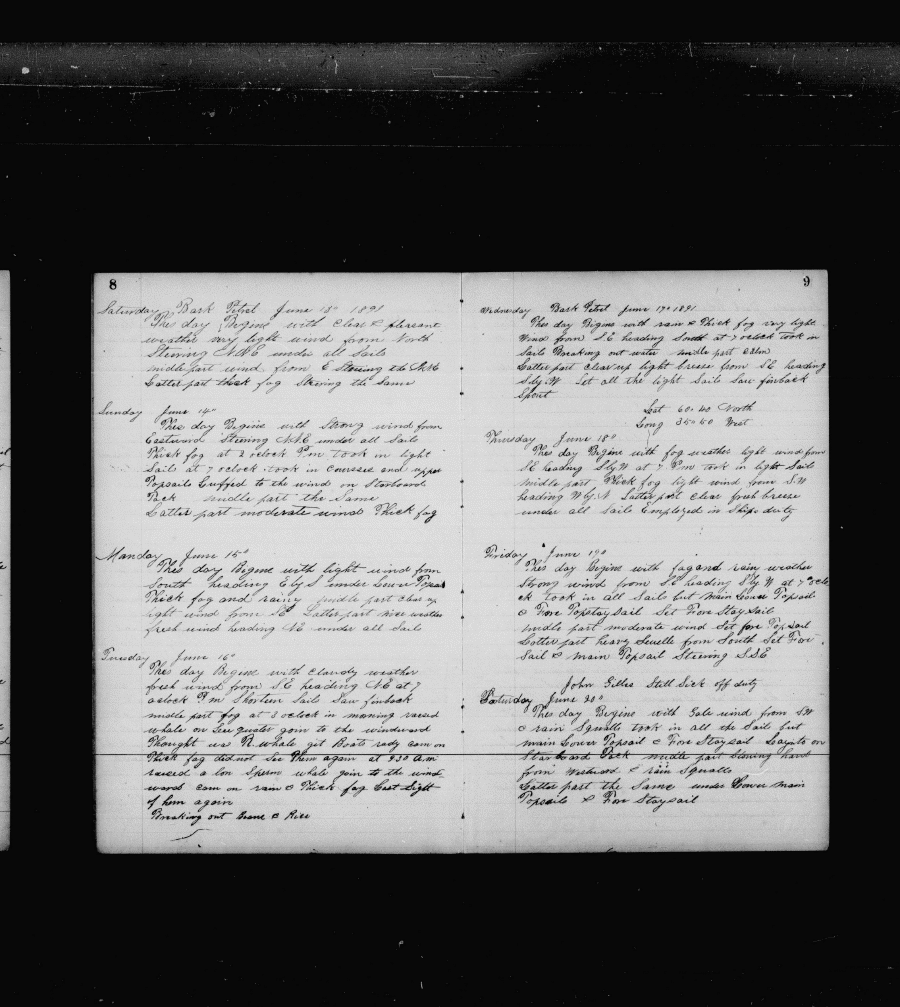 8
Saturday Bark Petrel June 13th 1891
This day Begins with Clear & pleasant
weather very light wind from North
Steering NNE under all Sails
middle part wind from E Steering the NNE
Latter part thick fog Steering the Same
Sunday June 14th
This day Begins with Strong wind from
Eastward Steering NNE under all Sails
Thick fog at 2 oclock P.m took in light
Sails at 7 oclock took in Courses and upper
Topsails Luffed to the wind on Starboard
Tack middle part the Same
Latter part moderate wind Thick fog
Monday June 15th
This day Begins with light wind from
South heading E by S under Lower Topsail
Thick fog and rainy middle part clear up
ight wind from SE Latter part nice weather
fresh wind heading NE under all Sails
Tuesday June 16th
This day Begins with Cloudy weather
fresh wind from S.E heading NE at 7
oclock P.m Shorten Sails Saw finback
middle part fog at 3 oclock in morning raised
whale on Lee quater goin to the windward
Thought was R whale git Boats rady Cam on
Thick fag did not See them again at 9.30 a.m
raised a lon Sperm whale goin to the wind
ward cam on rain & Thick fog Lost Sight
of hem again
Breaking out & Rice
9
Wednesday Bark Petrel June 17th 1891
This day Begins with rain & Thick fog very light
Wind from S.E heading South at 7 oclock took in
Sails Breaking out water middle part calm
Latter part Clear up light breeze from SE heading
S by W Set all the light Sails Saw finback
Spout
Lat 60.40 North
Long 35.50 West
Thursday June 18th
This day Begins with fog weather light wind from
SE heading S by W at 7 P.m took in light Sails
middle part Thick fog light wind from S.W
heading W by N Latter part Clear fresh breeze
under all Sails Employed in Ships duty
Friday June 19th
This day Begins with fog and rain weather
Strong wind from SE heading S by W at 7 oclo
ck took in All Sails but main Lower Topsail
& Fore Topstaysail Set Fore Stay Sail
middle part moderate wind Set fore Topsail
Latter part heavy Swelle from South Set Fore
Sail & main Topsail Steering S.S.E
John Gilles Still Sick off duty
Saturday June 20th
This day Begins with Gale wind from SW
& rain Squalls took in all the Sails but
main Lower Topsail & Fore Staysail Layinto on
Starboard Tack middle part Blowing hard
from Westward & rain Squalls
Latter part the Same under Lower main
Topsails & Fore Staysail